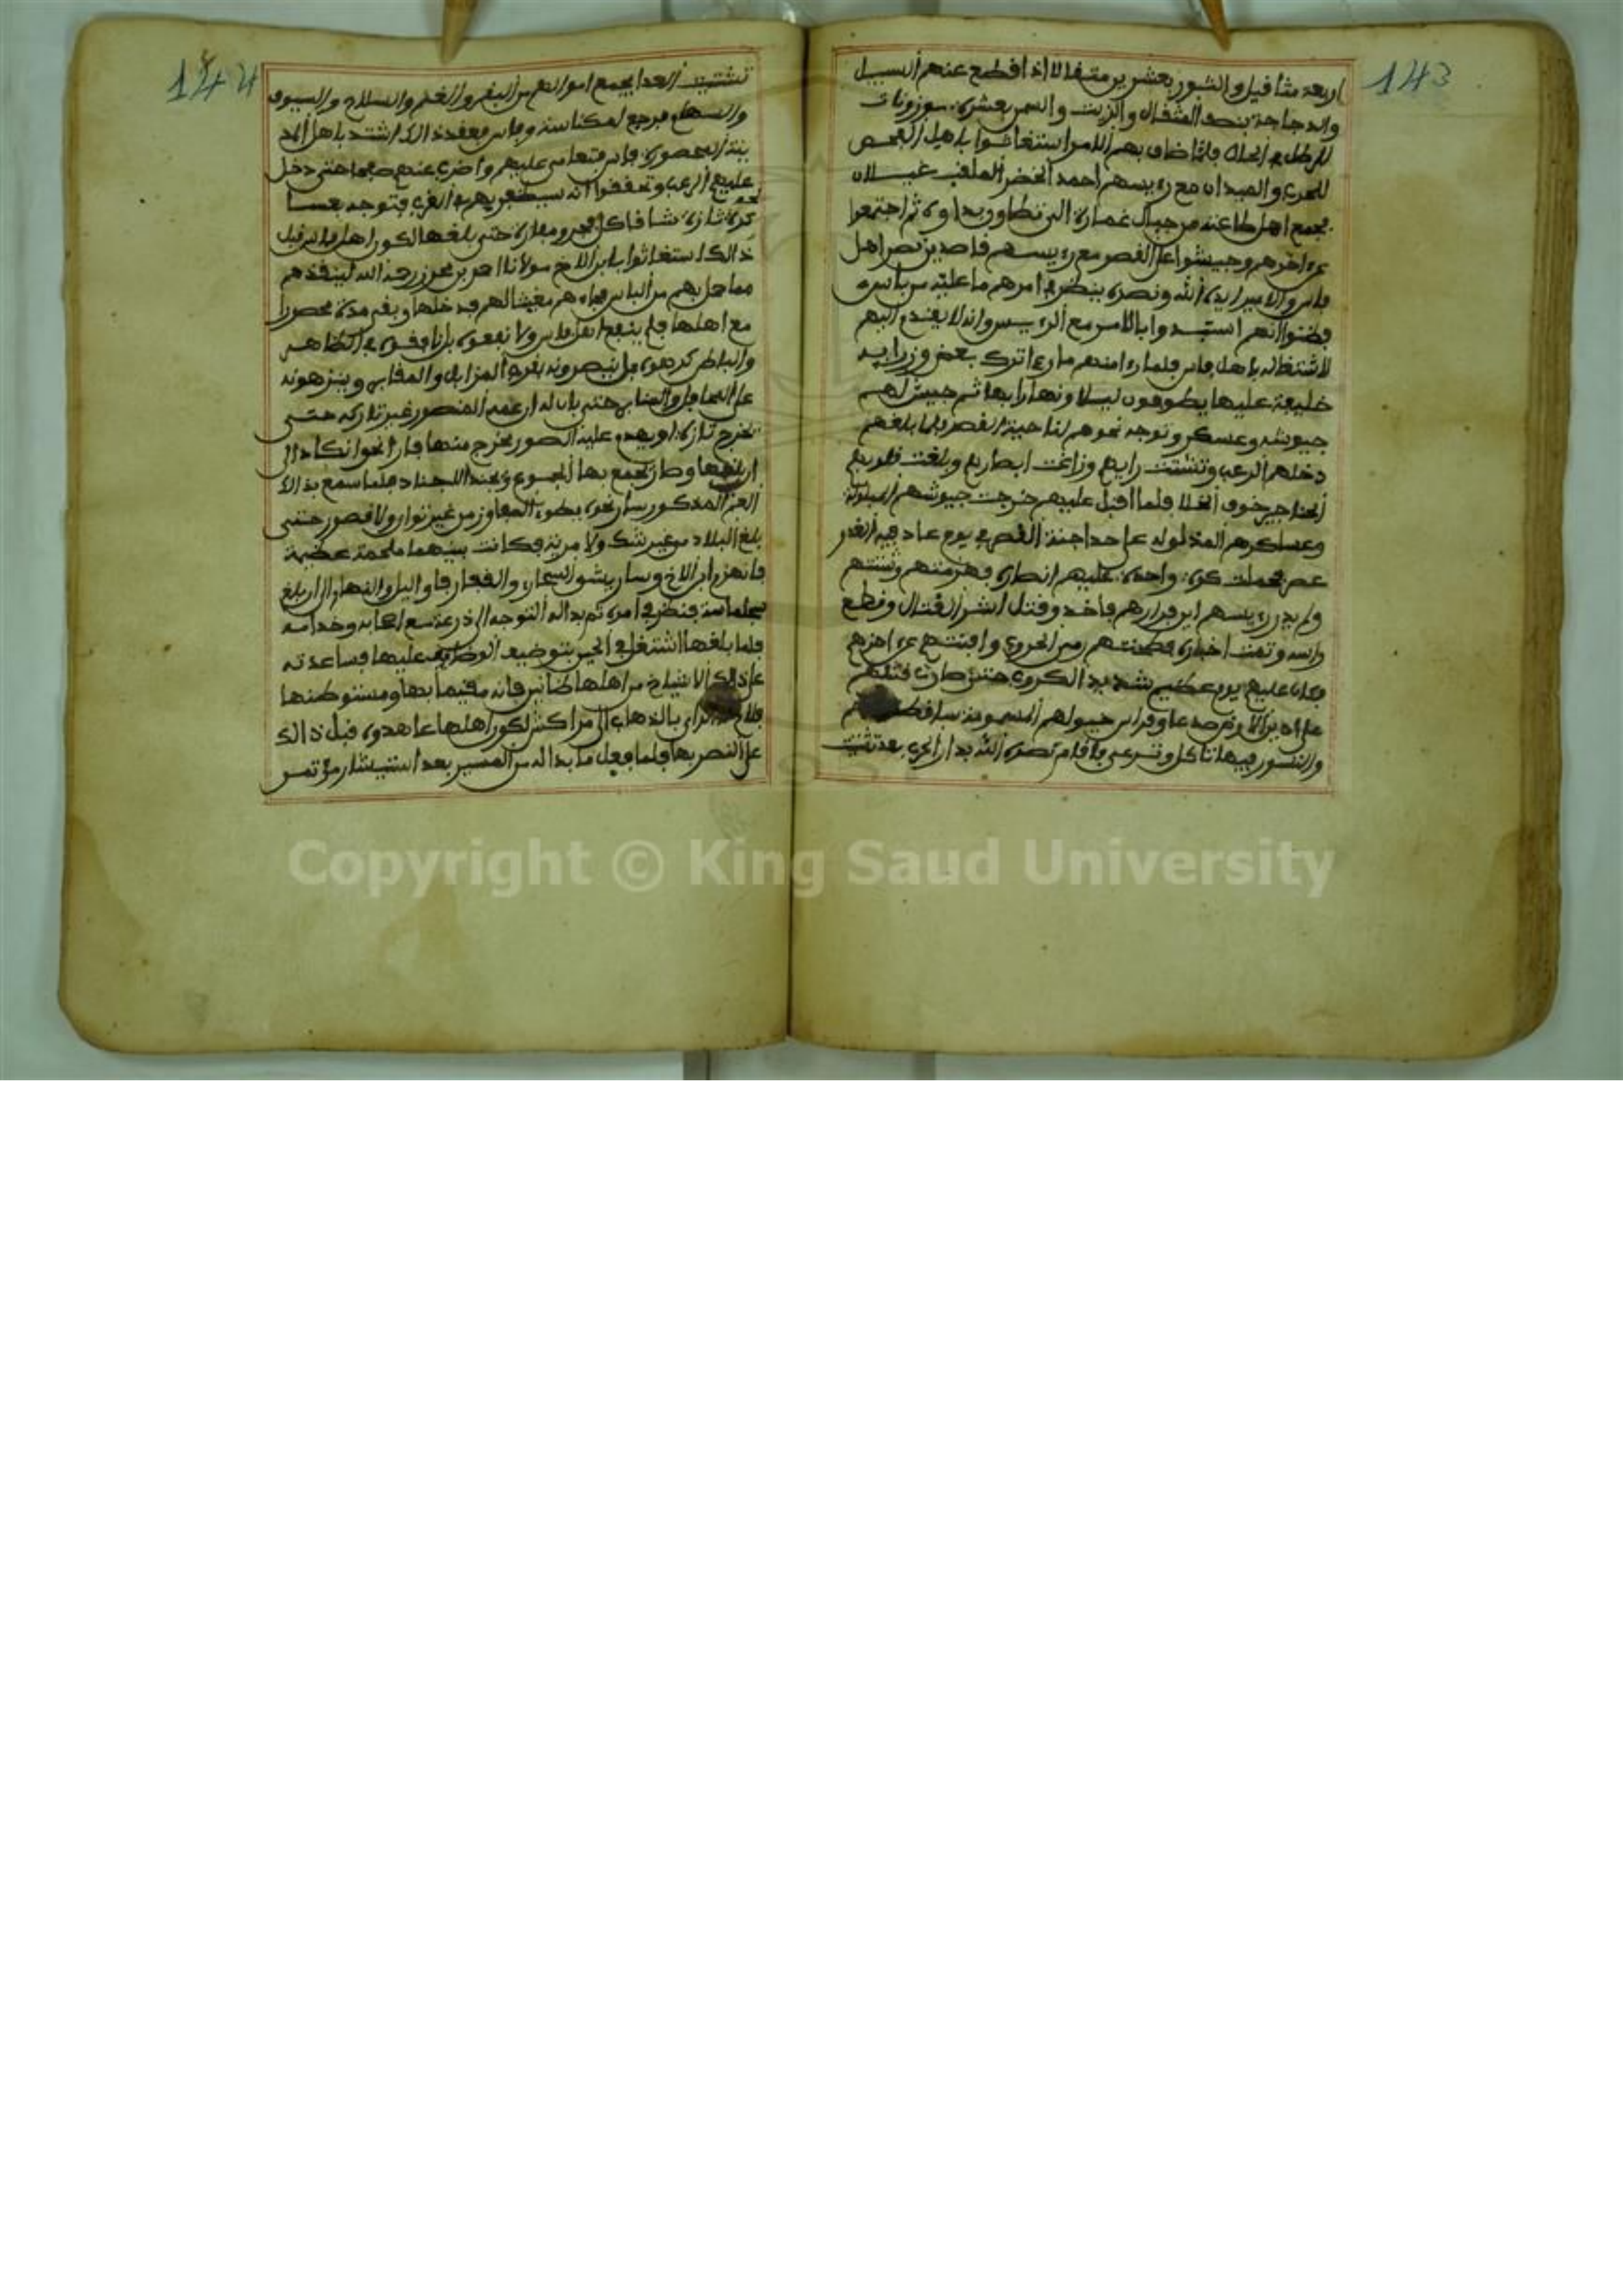 143
اربعة مثاقيل والثور بعشرين مثقالا اذ اقطع عنهم السبيل
والدجاجة بنصف المثقال والزيت والسمن بعشرة موزونات
للرطل في الحال فلما ضاق بهم الامر استغاثوا باهل الفحص
للحرب والميدان مع رييسهم احمد الخضر الملقب غيلان
فجمع اهل طاعته من جبال غمارة الى تطاوون ثم اجتمعوا
عن اخرهم وجيشوا على القصر مع رييسهم قاصدين نصر اهل
فاس والامير ايده الله ونصره ينظر في امرهم ما عليه من باس
فظنوا انهم استبدوا بالامر مع الرييس وانه لا يقدم اليهم
لاشتغاله باهل فاس فلما راى منهم ما راى ترك بعض وزرايه
خليفة عليها يطوفون ليلا ونهارا بها ثم جيش لهم
جيوشه وعسكر وتوجه نحوهم لناحية القصر فلما بلغهم
دخلهم الرعب وتشتت رايهم وزاغت ابصارهم وبلغت قلوبهم
الحناجر خوف الخلا فلما اقبل عليهم خرجت جيوشهم
وعساكرهم المخذولة على احد اجنة القصر في يوم عاد فيه الغدر
فحملت كرة واحدة عليهم انصاره فهزمتهم وشتتهم
ولم يدر رييسهم اين فرارهم فاخذ وقتل اشر القتال وقطع
راسه وتمت اخباره فطحنتهم رحى الحروب وافنتهم عن اخرهم
فكان عليهم يوم عظيم شديد الكروب حتى صارت قتلاهم
والنسور فيها تاكل وترعى فاقام نصره الله بدار الحرب بعد تشتيت
144
تشتيت العدا يجمع اموالهم من البقر والغنم والسلاح والسيوف
والسهام فرجع لمكناسة وفاس فبعد ذالك اشتد باهل المد
ينة المحصورة فاس فتعامى عليهم واضرب عنهم صفحا حتى دخل
عليهم الرعب وتحققوا انه سيظفر بهم في القرب فتوجه بعسا
كره لتازة شاقا كل فج ومفازة حتى بلغها لكون اهل فاس قبل
ذالك استغاثوا بابن الاخ مولانا احمد بن محرز رحمه الله لينقذهم
مما حل بهم من الباس فجاءهم مغيثا لهم فدخلها وبقي مدة محصورا
مع اهلها فلم ينفع اهل فاس ولا نفعوه بل نافقوه في الظاهر
والباطن كرهوه بل ينصرونه بقرب المزابل والمقابر وينزهونه
على المحافل والمنابر حتى بان له ان عمه المنصور غير تاركه حتى
يخرج تازة او يهدم عليه الصور فخرج منها فارا نحو انكاد الى
ان بلغها وصار يجمع بها الجموع ويجند الاجناد فلما سمع بذالك
العم المذكور سار نحوه يطوي المفاوز من غير توان ولا قصور حتى
بلغ البلاد من غير شك ولا مرية فكانت بينهما ملحمة عظيمة
فانهزم ابن الاخ وسار يشق السحار والقفار فاو اليل والنهار الى ان بلغ
سجلماسة فنظر في امره ثم بدا له التوجه الى ذرعة مع اصحابه وخدامه
فلما بلغها اشتغل في الحين بتوضيف الوظايف عليها فساعدته
على ذلك الاشياخ من اهلها ظانين فانه مقيما بها ومستوطنها
الراي بالذهاب الى مراكش لكون اهلها عاهدوه قبل ذالك
على النصر بها فلما فعل ما بدا له من المسير بعد استيشار مؤتمر
Copyright © King Saud University